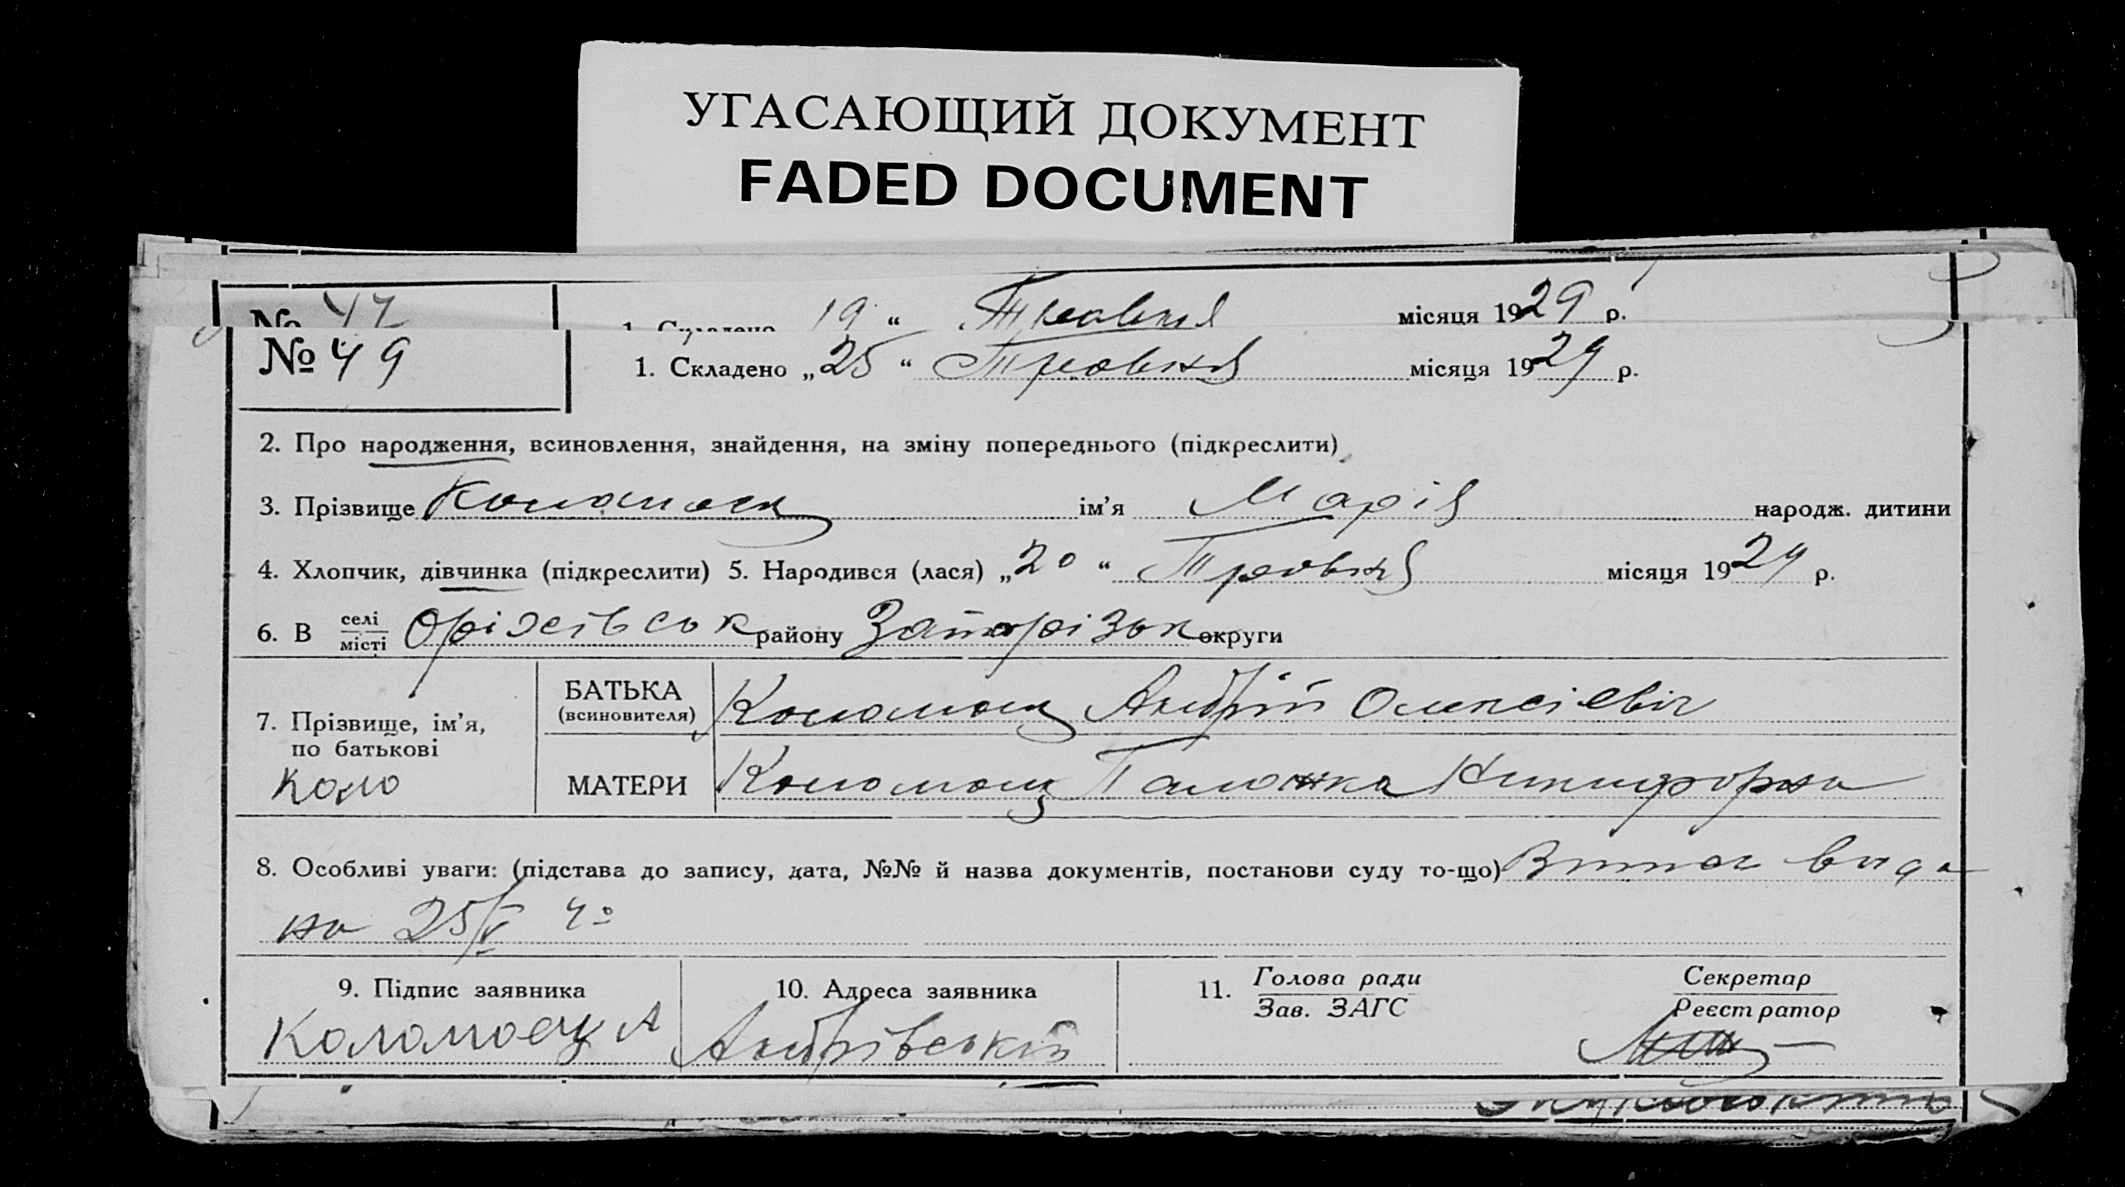 УГАСАЮЩИЙ ДОКУМЕНТ
FADED DOCUMENT
№ 47 1. Складено 19 “ Травня місяця 1929 р.
№ 49 1. Складено „25“ Травня місяця 1929 р.
2. Про народження, всиновлення, знайдення, на зміну попереднього (підкреслити)
3. Прізвище Коломоец ім’я Марія народж. дитини
4. Хлопчик, дівчинка (підкреслити) 5. Народився (лася) „20“ Травня місяця 1929 р.
6. В селі місті Оріхівськ району Запорізьк округи
7. Прізвище, ім’я, по батькові
Коло
БАТЬКА (всиновителя) Коломоец Андрій Олексієвіч
МАТЕРИ Коломоец Никифорна
8. Особливі уваги: (підстава до запису, дата, №№ й назва документів, постанови суду то-що) Витяг вида
на 25/V
9. Підпис заявника 10. Адреса заявника 11. Голова ради Зав. ЗАГС Секретар Реєстратор
Коломоец А Андрівській